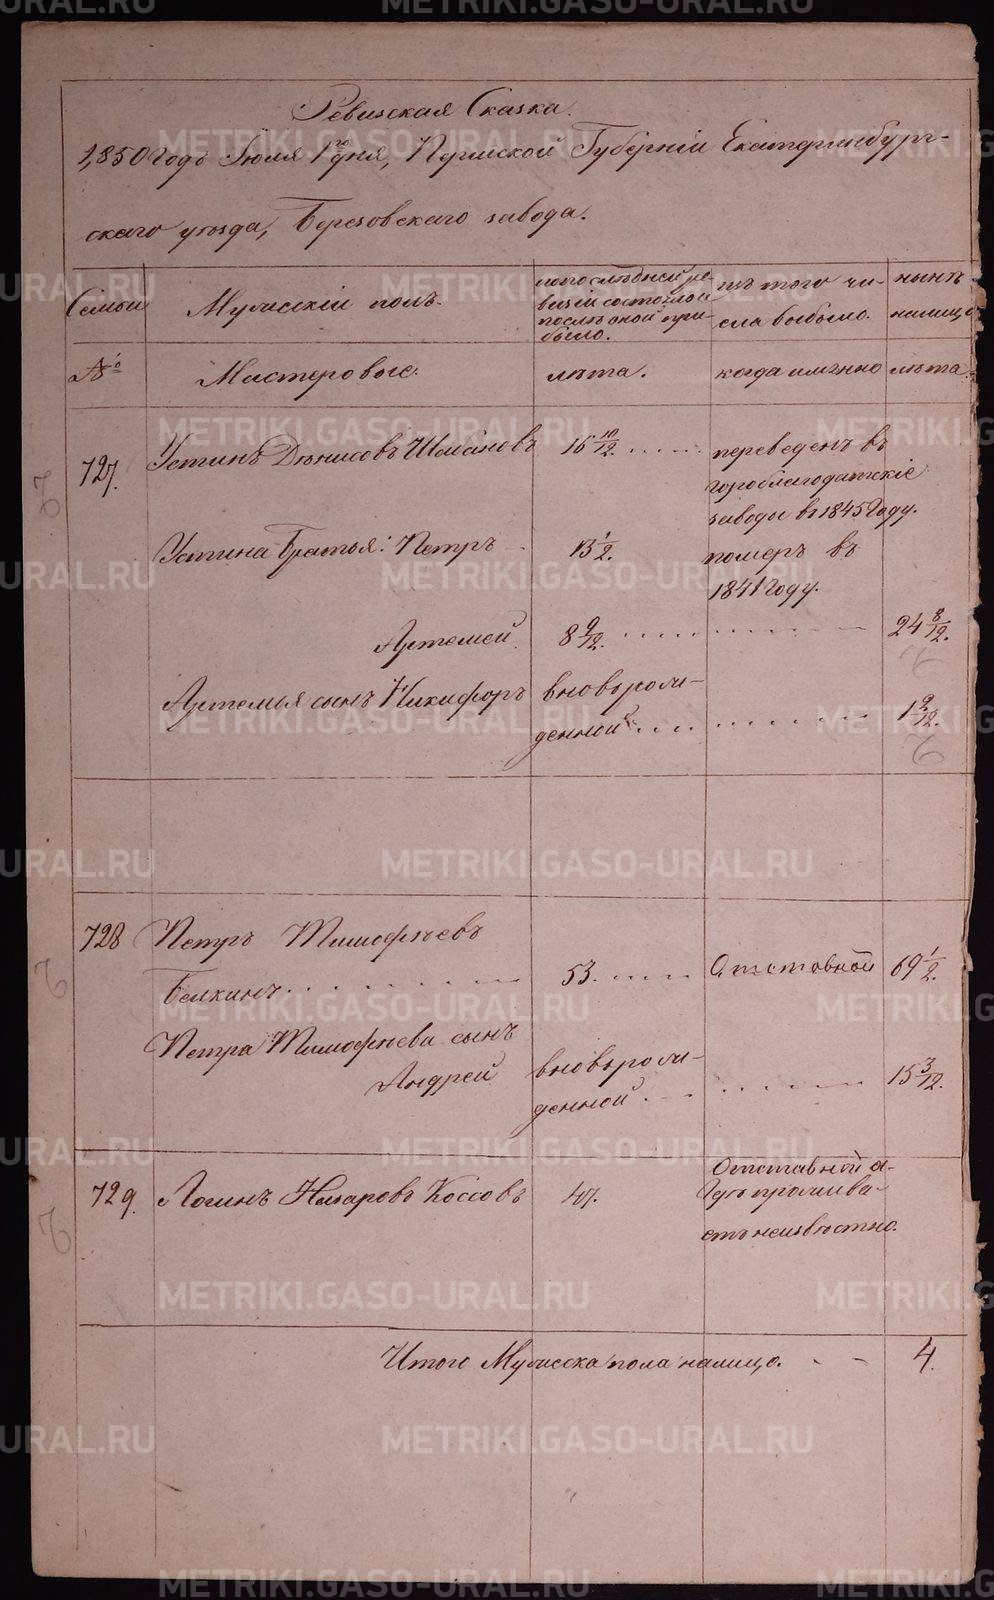 Ревизская Сказка.
1850 Года Июля 1го дня, Пермской Губерніи Екатеринбург-
скаго уѣзда, Березовскаго завода.
Семьи
Мужескій полъ.
попослѣдней ре-
визіи состояло и
послѣ оной при-
было.
изъ того чи-
сла выбыло.
нынѣ
налицо
№
Мастеровые.
лѣта.
когда имянно
лѣта.
727.
Устинъ Денисовъ
16 10/12.
переведенъ въ
Гороблагодатскіе
заводы въ 1845 Году.
Устина братья: Петръ
13 1/2.
померъ въ
1841 Году.
Артемей
8 9/12.
24 8/12.
Артемья сынъ Никифоръ
вновьрож-
денной
1 9/12.
728
Петръ Тимофѣевъ
Белкинъ
53.
Отставной
69 1/2.
Петра Тимофѣева сынъ
Андрей
вновьрож-
денной
15 3/12.
729.
Логинъ Назаровъ Коссовъ
47.
Отставной а
Гдѣ прожива-
етъ неизвѣстно.
Итого Мужеска пола налицо.
4.
METRIKI.GASO-URAL.RU